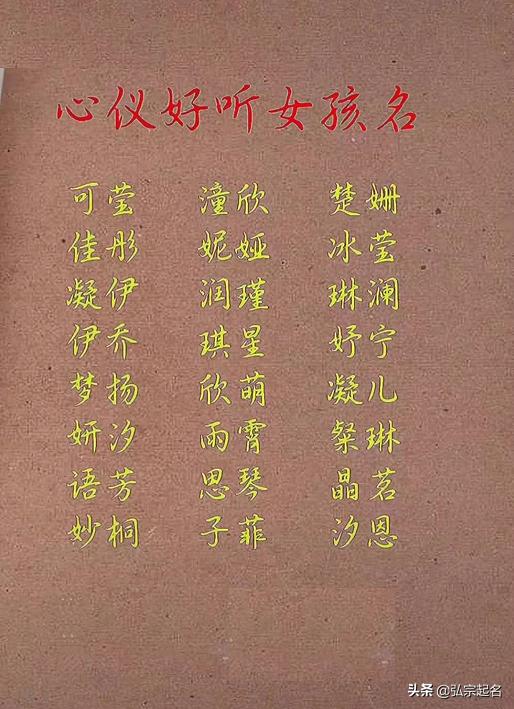 心仪好听女孩名
可莹 潼欣 楚姗
佳彤 妮娅 冰莹
凝伊 润瑾 琳澜
伊乔 琪星 妤宁
梦扬 欣萌 凝儿
妍汐 雨霄 粲琳
语芳 思琴 晶茗
妙桐 子菲 汐恩
头条 @弘宗起名